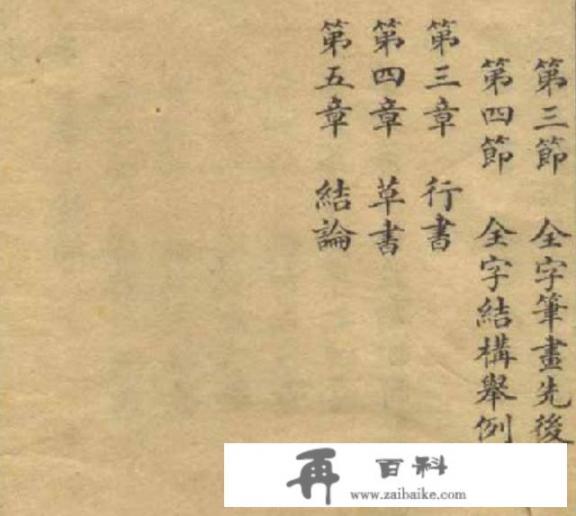 第三節 全字筆畫先後
第四節 全字結構舉例
第三章 行書
第四章 草書
第五章 結論
再 百科
www.zaibaike.com